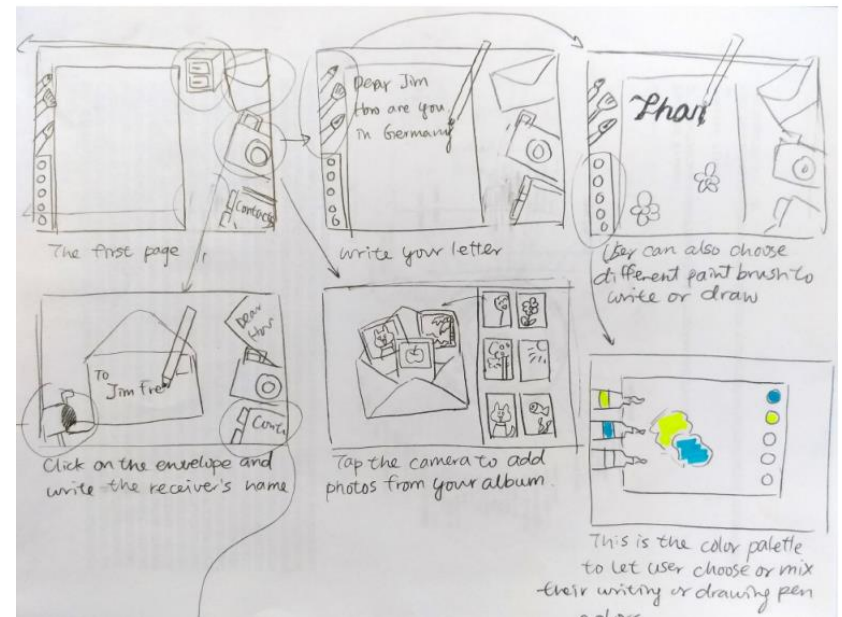 Contacts
The first page
Dear Jim
How are you
in Germany
write your letter
Than
User can also choose
different paint brush to
write or draw
To
Jim Fre
Dear
How
Conta
Click on the envelope and
write the receiver's name
Tap the camera to add
photos from your album.
This is the color palette
to let user choose or mix
their writing or drawing pen